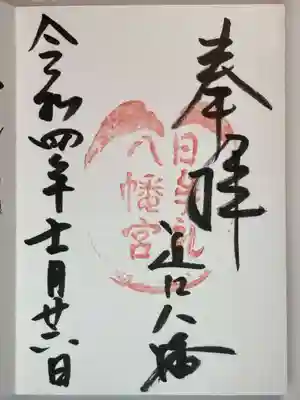 奉拝
近江八幡
日牟礼
八幡宮
令和四年十一月廿六日